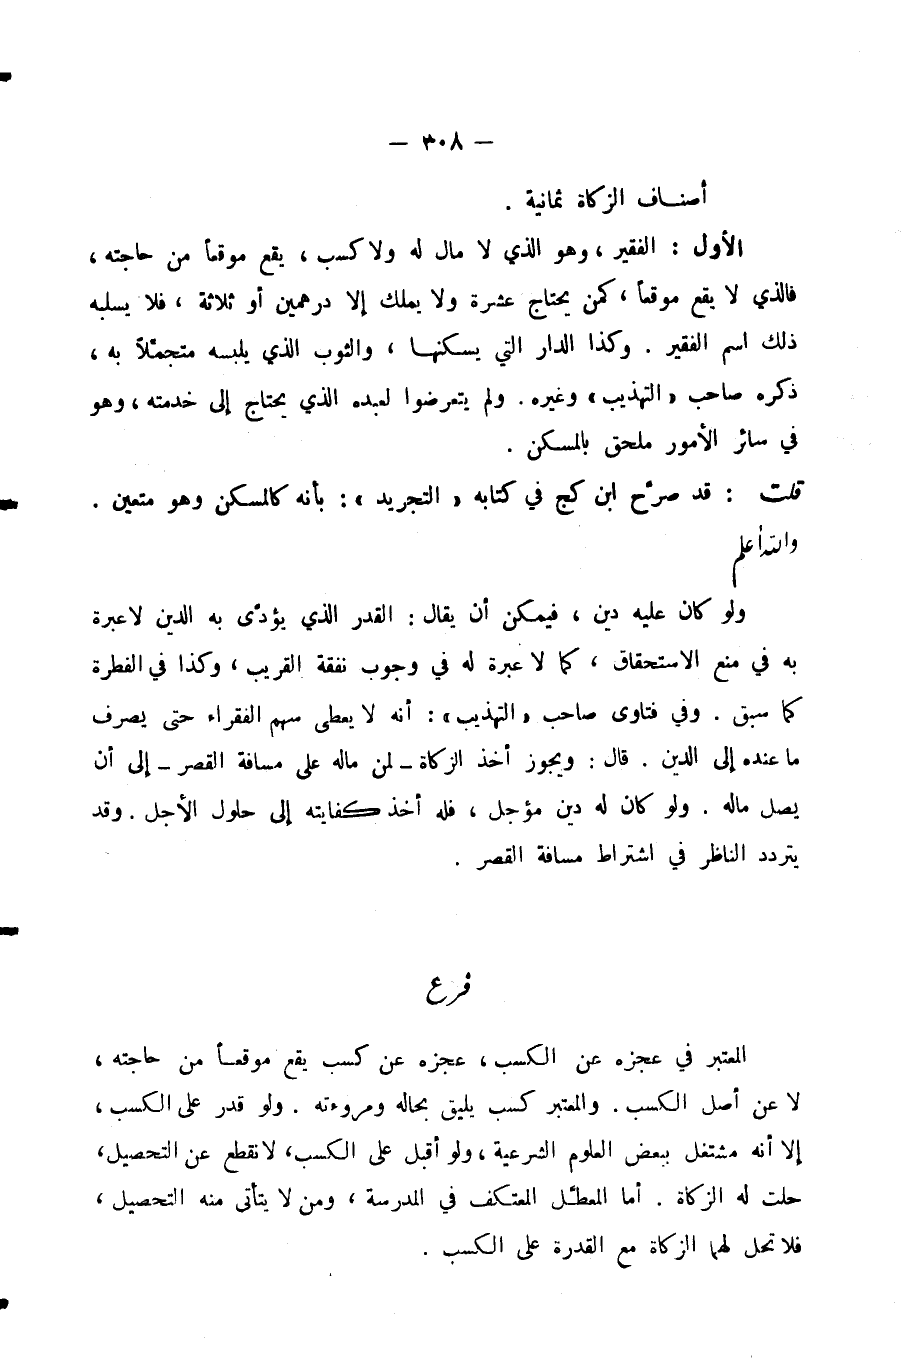 — ٣٠٨ —
أصنــاف الزكاة ثمانية .
الأول : الفقير ، وهو الذي لا مال له ولا كسب ، يقع موقعاً من حاجته ،
فالذي لا يقع موقعاً ، كمن يحتاج عشرة ولا يملك إلا درهمين أو ثلاثة ، فلا يسلبه
ذلك اسم الفقير . وكذا الدار التي يسكنهــا ، والثوب الذي يلبسه متجمّلاً به ،
ذكره صاحب « التهذيب » وغيره . ولم يتعرضوا لعبده الذي يحتاج إلى خدمته ، وهو
في سائر الأمور ملحق بالمسكن .
قلت : قد صرّح ابن كج في كتابه « التجريد » : بأنه كالمسكن وهو متعين .
والله أعلم
ولو كان عليه دين ، فيمكن أن يقال : القدر الذي يؤدّى به الدين لا عبرة
به في منع الاستحقاق ، كما لا عبرة له في وجوب نفقة القريب ، وكذا في الفطرة
كما سبق . وفي فتاوى صاحب « التهذيب » : أنه لا يعطى سهم الفقراء حتى يصرف
ما عنده إلى الدين . قال : ويجوز أخذ الزكاة – لمن ماله على مسافة القصر – إلى أن
يصل ماله . ولو كان له دين مؤجل ، فله أخذ كفايته إلى حلول الأجل . وقد
يتردد الناظر في اشتراط مسافة القصر .
فرع
المعتبر في عجزه عن الكسب ، عجزه عن كسب يقع موقعــاً من حاجته ،
لا عن أصل الكسب . والمعتبر كسب يليق بحاله ومروءته . ولو قدر على الكسب ،
إلا أنه مشتغل ببعض العلوم الشرعية ، ولو أقبل على الكسب ، لانقطع عن التحصيل ،
حلت له الزكاة . أما المعطّل المعتكف في المدرسة ، ومن لا يتأتى منه التحصيل ،
فلا تحل لهما الزكاة مع القدرة على الكسب .